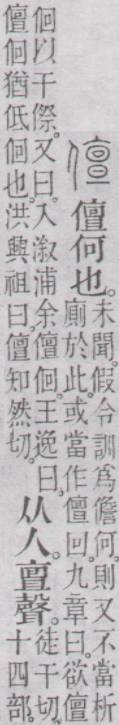 儃
儃何也。
未聞。假令訓爲儋何。則又不當析
廁於此。或當作儃回。九章曰。欲儃
佪以干傺。又曰。入漵浦余儃佪。王逸曰。
儃佪猶低佪也。洪興祖曰儃知然切。
从人。亶聲。
徒干切。
十四部。